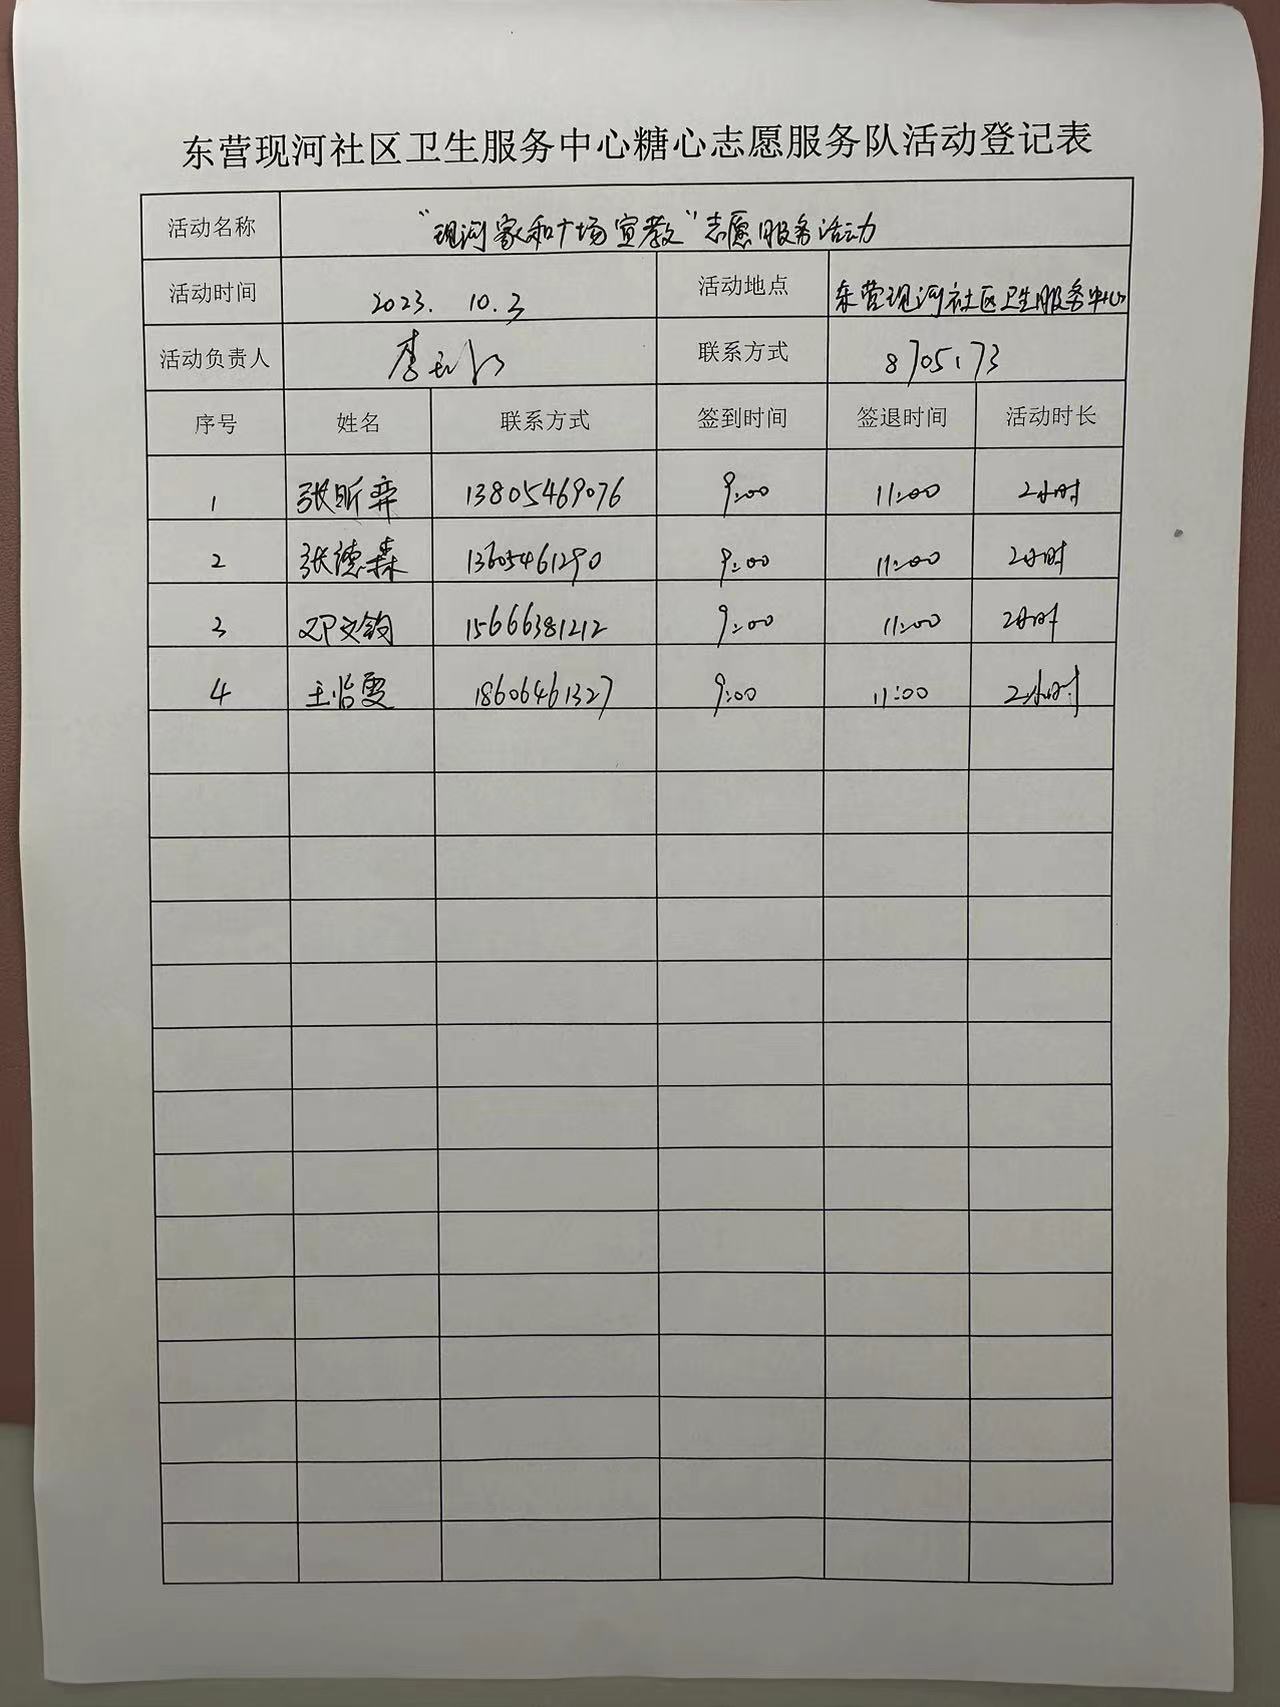 东营现河社区卫生服务中心糖心志愿服务队活动登记表
活动名称 “现河家和广场宣教”志愿服务活动
活动时间 2023. 10.3 活动地点 东营现河社区卫生服务中心
活动负责人 李 联系方式 8705173
序号 姓名 联系方式 签到时间 签退时间 活动时长
1 张昕弈 13805469076 9:00 11:00 2小时
2 张德森 13605461290 9:00 11:00 2小时
3 邓文钧 15666381212 9:00 11:00 2小时
4 王怡雯 18606461327 9:00 11:00 2小时